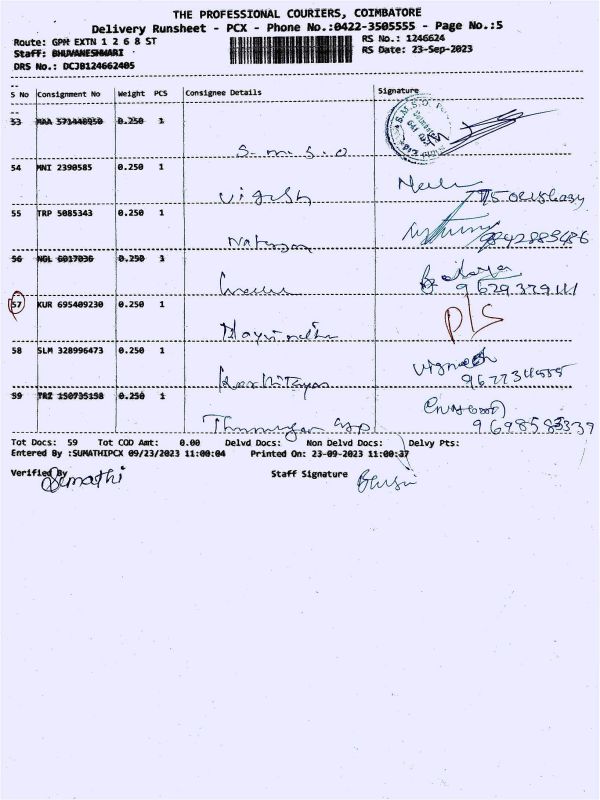 THE PROFESSIONAL COURIERS, COIMBATORE
Delivery Runsheet - PCX - Phone No.:0422-3505555 - Page No.:5
Route: GPH EXTN 1 2 6 8 ST
RS No.: 1246624
Staff: BHUVANESHWARI
RS Date: 23-Sep-2023
DRS No.: DCJB124662405
S No Consignment No Weight PCS Consignee Details Signature
53 MAA 571448950 0.250 1
S.M.S.O
54 MNI 2390585 0.250 1
Vigesh
55 TRP 5085343 0.250 1
Natesan
9842283486
56 NGL 6017036 0.250 1
9629379111
57 KUR 695409230 0.250 1
P/S
58 SLM 328996473 0.250 1
Vignesh
59 TRZ 150735158 0.250 1
9698583339
Tot Docs: 59 Tot COD Amt: 0.00 Delvd Docs: Non Delvd Docs: Delvy Pts:
Entered By :SUMATHIPCX 09/23/2023 11:00:04 Printed On: 23-09-2023 11:00:37
Verified By Staff Signature
Sumathi